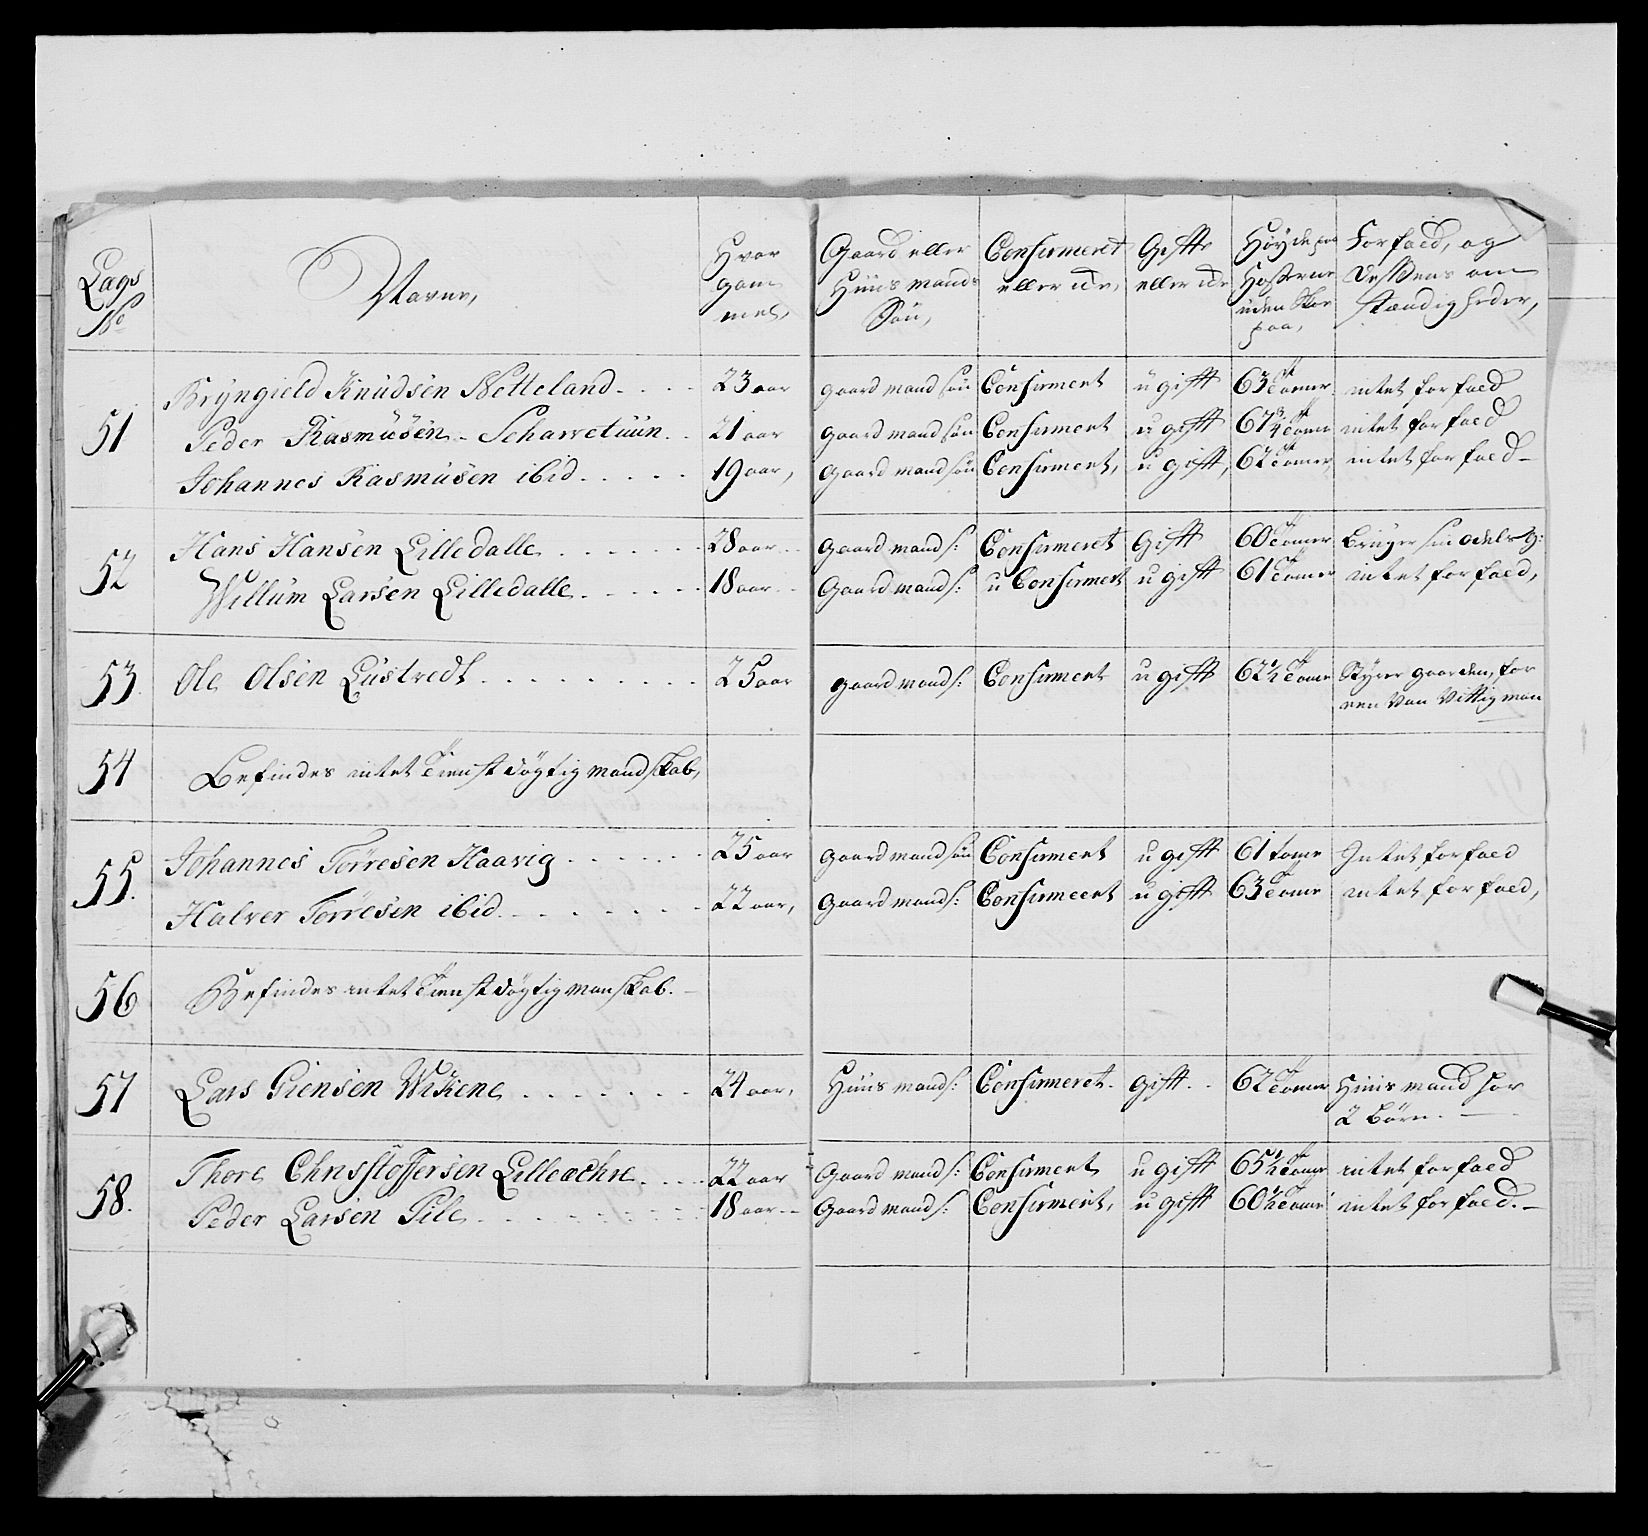 Lags No | Navne, | Hvor gam mel, | Gaard eller Huus mands Søn, | Confirmeret eller ide, | Gifte eller ide | Høyde paa Hosterne uden Skoe paa, | Forfald, og omstændigheder,
51 | Bryngield Knudsen Netteland | 23 aar | gaard mand søn | Confirment | u gift | 63 tomer | intet forfald
Peder Rasmusen Scharretuun | 21 aar | gaard mand søn | Confirment | u gift | 61 3/4 tomer | intet forfald
Johannes Rasmusen ibid | 19 aar, | gaard mand søn | Confirment, | u gift, | 62 tomer | intet forfald
52 | Hans Hansen Lilledalle | 28 aar | gaard mand s: | Confirmeret | Gift | 60 tomer | Bruger sin odels g:
Willum Larsen Lilledalle | 18 aar | Gaard mand s: | u Confirmert | u gift | 61 tomer | intet forfald,
53. | Ole Olsen Lustvedt | 25 aar | gaard mand s: | Confirment | u gift | 62 1/2 tomer | Styrer gaarden, for
een Van Vittig man
54 | Befindes intet tienst dygtig mandskab,
55. | Johannes Tørresen Haavig | 25 aar | gaard mand søn | Confirment | u gift | 61 tome | Intet forfald
Halver Tørresen ibid | 22 aar, | gaard mand s: | Confirmeert | u gift | 63 tome | intet forfald,
56 | Befindes intet tienst dygtig manskab.
57 | Lars Giensen Wikene | 24 aar, | Huus mand s: | Confirmeret. | gift. | 62 tomer | Huus mand har
2 Børn.
58. | Thore Christoffersen Lilleachre | 22 aar | Gaard mand s: | Confirment | u gift | 65 1/2 tomer | intet forfald
Peder Larsen Pile | 18 aar | Gaard mand s: | Confirment, | u gift | 60 1/2 tomer | intet forfald.